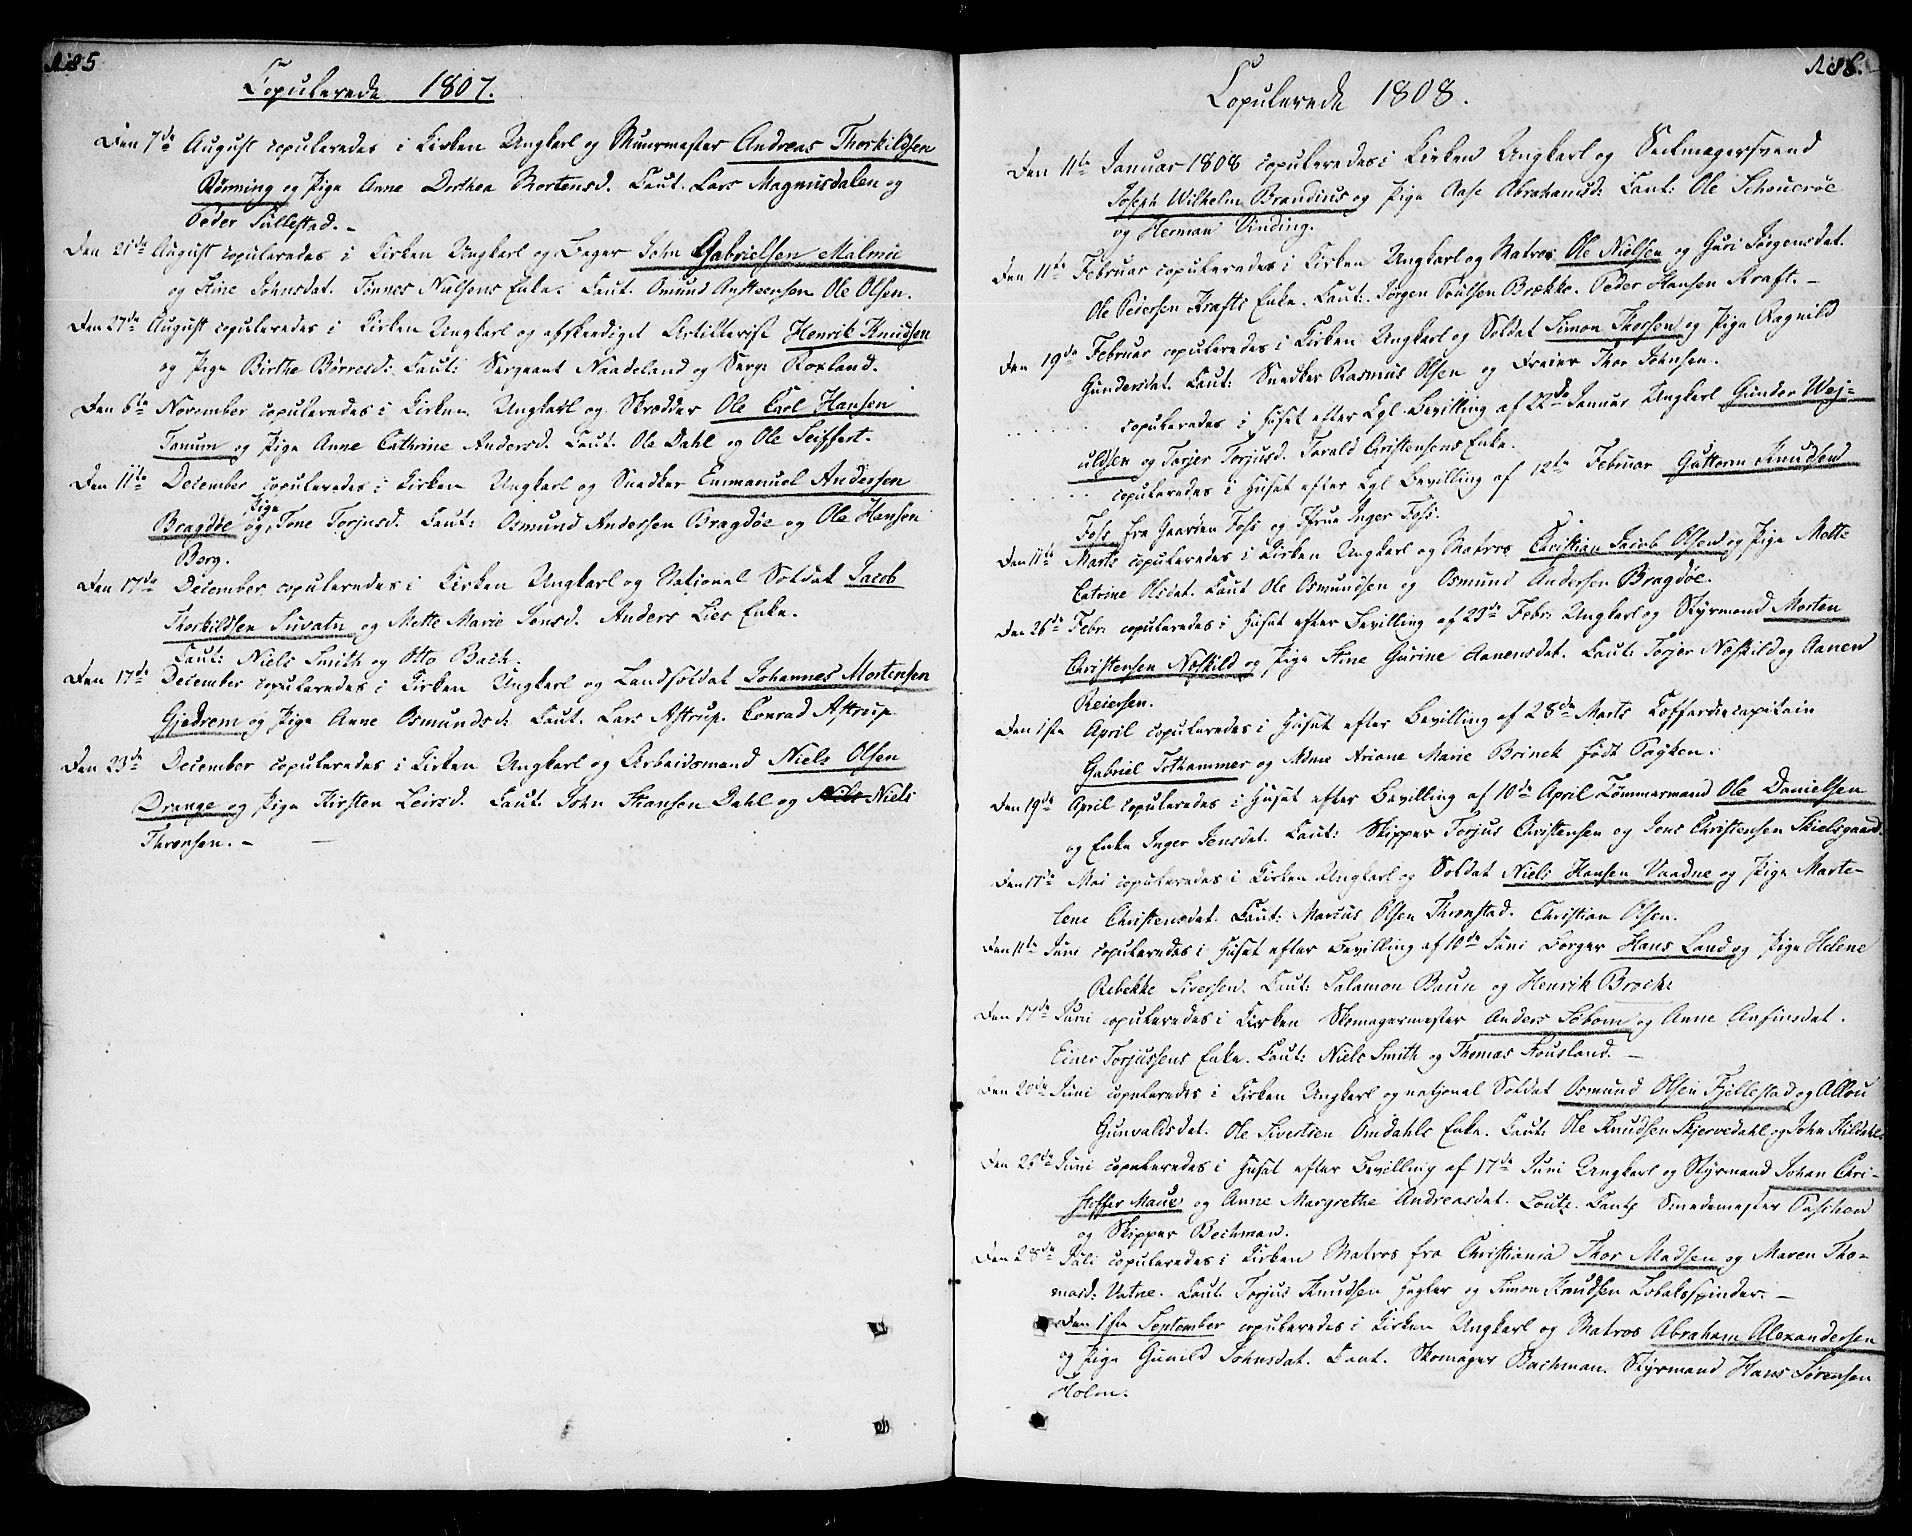 185
Copulerede 1807.
Den 7de August copuleredes i Kirken Ungkarl og Muurmester Andreas Thorkildsen
Rønning og Pige Anne Dorthea Mortensd. Caut. Lars Magnusdalen og
Peder Tullestad. -
Den 21de August copuleredes i Kirken Ungkarl og Bager John Gabrielsen Malmöe
og Stine Johnsdat. Tønnes Nielsens Enke. Caut. Osmund Ansteensen Ole Olsen.
Den 27de August copuleredes i Kirken Ungkarl og afskeediget Artillerist Henrik Knudsen
og Pige Birthe Børresd: Caut: Sergeant Naadeland og Serg: Roxland.
Den 6te November copuleredes i Kirken Ungkarl og Skrædder Ole Carl Hansen
Tanum og Pige Anne Cathrine Andersd. Caut. Ole Dahl og Ole Seiffert.
Den 11te December copuleredes i Kirken Ungkarl og Snedker Emmanuel Andersen
Bragdøe og Pige Tone Torjusd. Caut: Osmund Andersen Bragdøe og Ole Hansen
Borg.
Den 17de December copuleredes i Kirken Ungkarl og National Soldat Jacob
Thorkildsen Suvatn og Mette Marie Jensd. Anders Lies Enke.
Caut: Niels Smith og Otto Bach.
Den 17de December copuleredes i Kirken Ungkarl og Landsoldat Johannes Mortensen
Gjedrem og Pige Anne Osmundsd: Caut. Lars Astrup. Conrad Astrup
Den 23de December copuleredes i Kirken Ungkarl og Arbeidsmand Niels Olsen
Drange og Pige Kirsten Leirsd. Caut. John Hansen Dahl og Niels
Thronsen. -
186.
Copulerede 1808.
Den 11te Januar 1808 copuleredes i Kirken Ungkarl og Seilmagersvend
Joseph Wilhelm Brandius og Pige Aase Abrahamsd: Caut: Ole Schouerøe
og Herman Vinding.
Den 11te Februar copuleredes i Kirken Ungkarl og Matros Ole Nielsen og Guri Jørgensdat.
Ole Peiersen Krafts Enke. Caut: Jørgen Poulsen Brække. Peder Hansen Kraft. -
Den 19de Februar copuleredes i Kirken Ungkarl og Soldat Simon Thorsen og Pige Ragnild
Gundersdat. Caut: Snedker Rasmus Olsen og Dreier Thor Johnsen.
. . . . . . copuleredes i Huset efter Kgl. Bevilling af 22de Januar Ungkarl Gunder Waj-
uldsen og Torjer Torjusd. Torald Christensens Enke.
. . . . . . copuleredes i Huset efter Kgl Bevilling af 12te Februar Guttorm Knudsen
Foss fra Gaarden Foss og Frue Inger Foss.
Den 11te Marts copuleredes i Kirken Ungkarl og Matros Christian Jacob Olsen og Pige Mette
Catrine Olsdat. Caut Ole Osmundsen og Osmund Andersen Bragdøe.
Den 26de Febr: copuleredes i Huset efter Bevilling af 23de Febr: Ungkarl og Styrmand Morten
Christensen Næskild og Pige Stine Gurine Aanensdat. Caut: Torjer Næskild og Aanen
Reiersen.
Den 1ste April copuleredes i Huset efter Bevilling af 28de Marts Coffardiecapitain
Gabriel Tothammer og Mdme Ariane Marie Brinck født Poyken.
Den 19de April copuleredes i Huset efter Bevilling af 10de April Tømmermand Ole Danielsen
og Enke Inger Jensdat. Caut: Skipper Torjus Christensen og Jens Christensen Skielsgaard.
Den 17de Mai copuleredes i Kirken Ungkarl og Soldat Niels Hansen Vaadne og Pige Marte-
lene Christensdat. Caut: Marcus Olsen Thronstad. Christian Olsen.
Den 11te Juni copuleredes i Huset efter Bevilling af 10de Juni Borger Hans Lund og Pige Helene
Rebekke Siversen. Caut: Salamon Baun og Henrik Brock:
Den 17de Juni copuleredes i Kirken Skomagermester Anders Søbom og Anne Anfinsdat.
Einer Torjussens Enke. Caut: Niels Smith og Thomas Fousland. -
Den 20de Juni copuleredes i Kirken Ungkarl og national Soldat Osmund Olsen Fjellestad og Allou
Gunvaldsdat. Ole Sivertsen Omdahls Enke. Caut: Ole Knudsen Skjervedahl og John Kildahl
Den 26de Juni copuleredes i Huset efter Bevilling af 17de Juni Ungkarl og Styrmand Johan Chri-
stoffer Maue og Anne Margrethe Andreasdat. Loutz. Caut: Smedemester Paschen
og Skipper Bechman.
Den 28de Juli copuleredes i Kirken Matros fra Christiania Thor Madsen og Maren Tho-
masd: Vatne. Caut: Torjus Knudsen Hegler og Simon Knudsen Tobaksspinder. -
Den 1ste September copuleredes i Kirken Ungkarl og Matros Abraham Alexandersen
og Pige Gunild Johnsdat. Caut. Skomager Bachman. Styrmand Hans Sørensen
Holm.